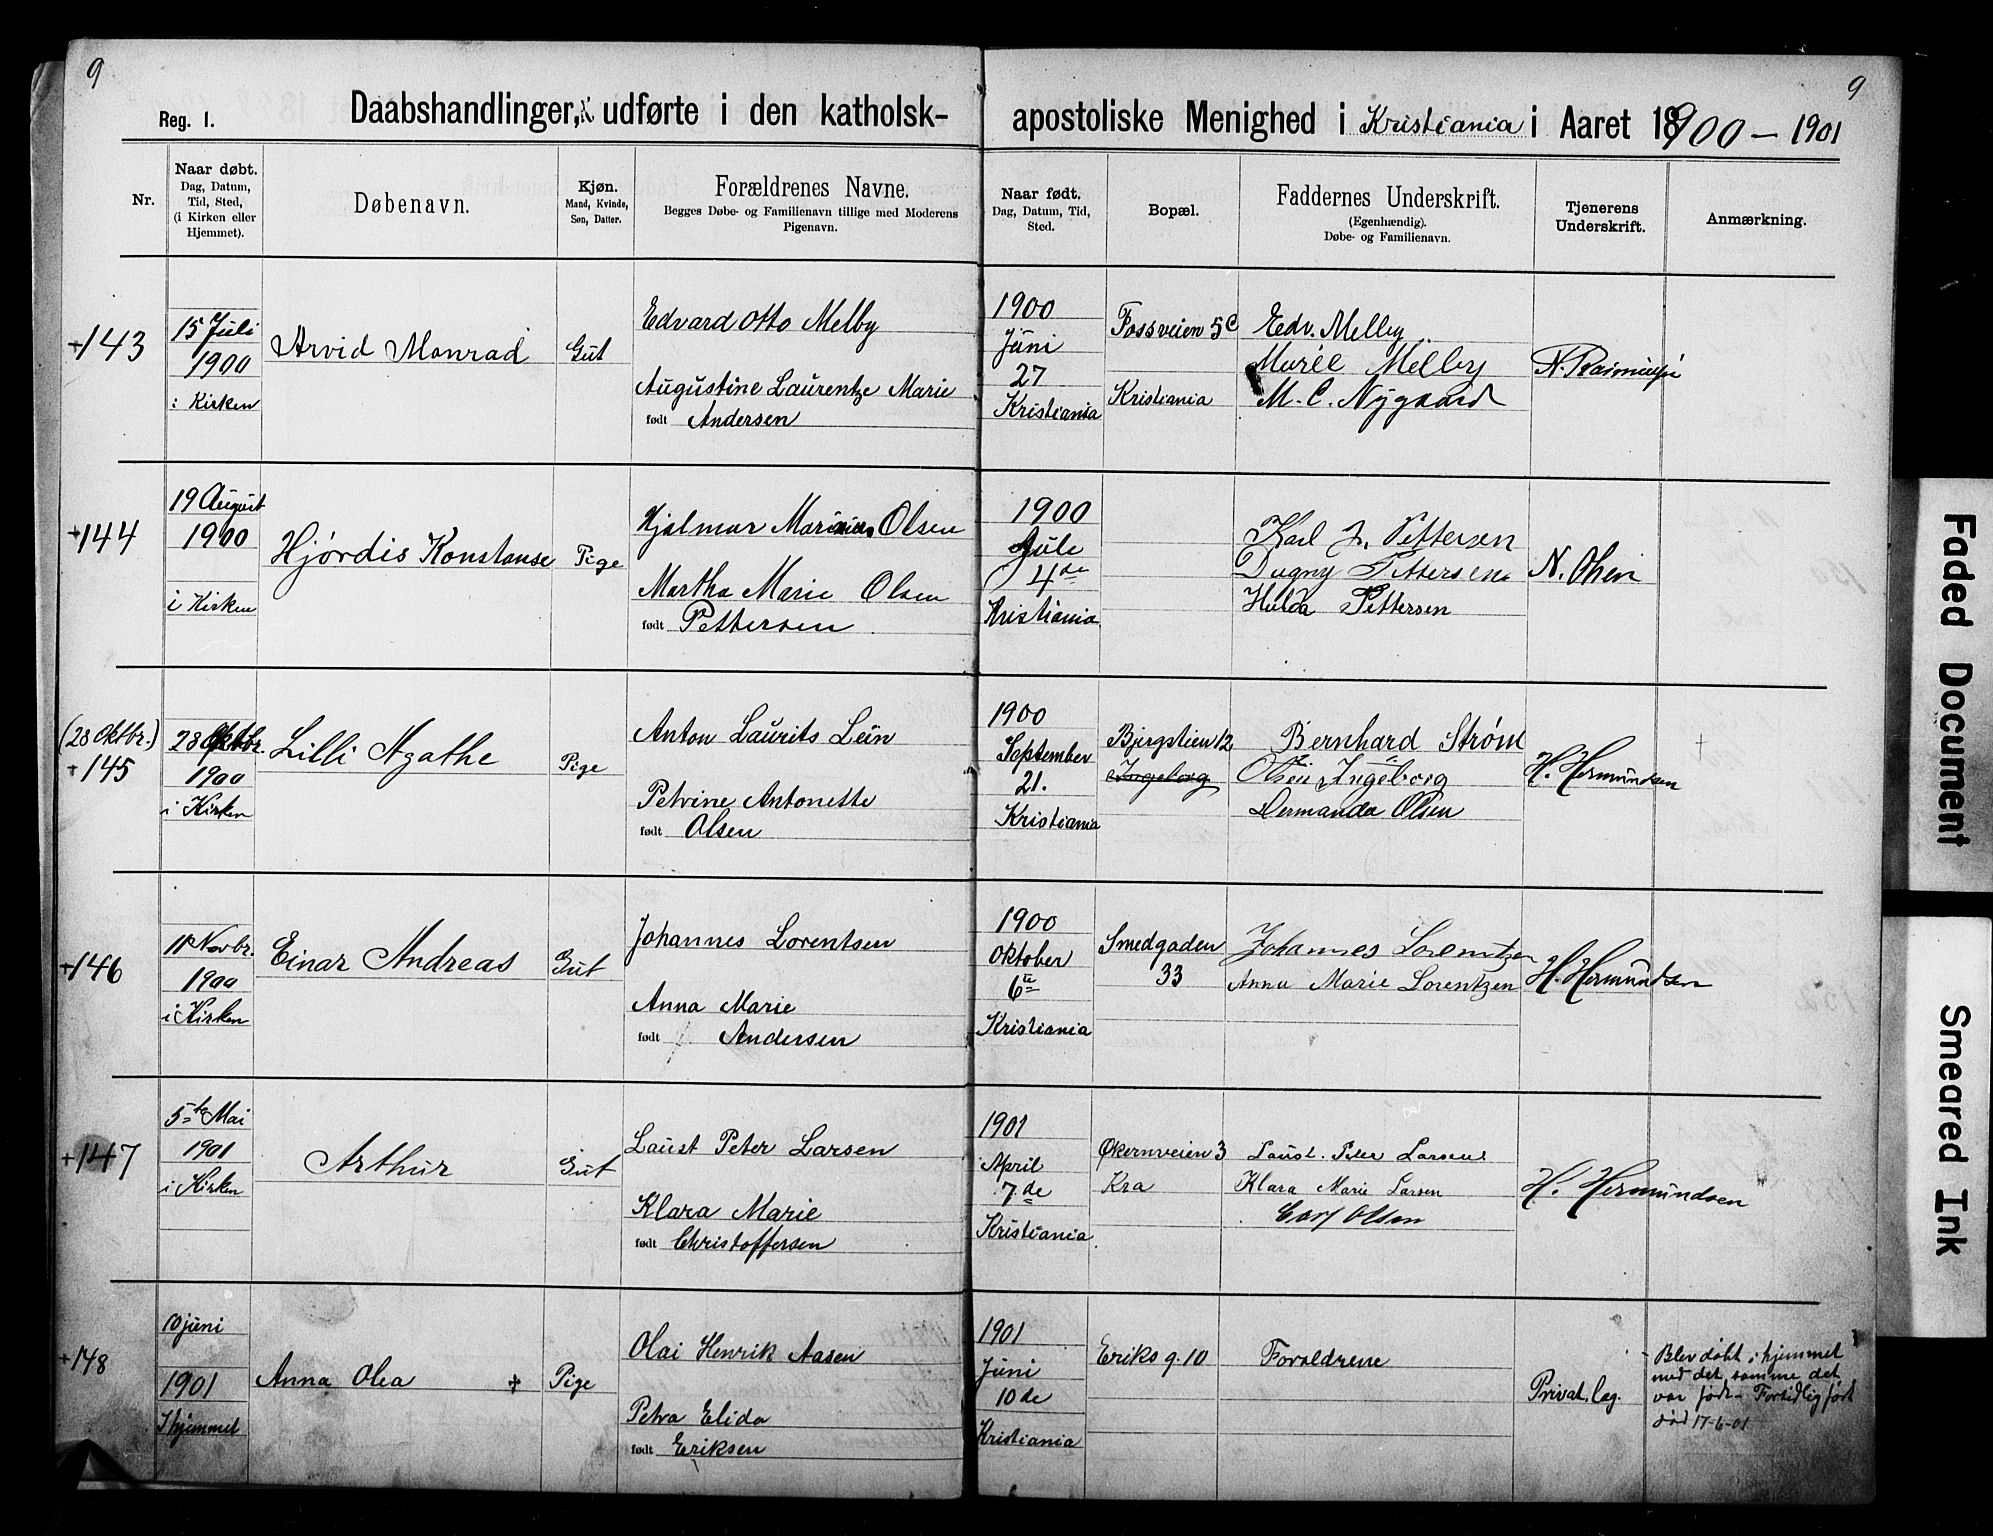 9
9
Reg. 1.
Daabshandlinger, udførte i den katholsk-
apostoliske Menighed i Kristiania i Aaret 1900 - 1901
Nr.
Naar døbt.
Dag, Datum,
Tid, Sted,
(i Kirken eller
Hjemmet).
Døbenavn.
Kjøn.
Mand, Kvinde,
Søn, Datter.
Forældrenes Navne.
Begges Døbe- og Familienavn tillige med Moderens
Pigenavn.
Naar født.
Dag, Datum, Tid,
Sted.
Bopæl.
Faddernes Underskrift.
(Egenhændig).
Døbe- og Familienavn.
Tjenerens
Underskrift.
Anmærkning.
+143
15 Juli
1900
i Kirken
Arvid Monrad
Gut
Edvard Otto Melby
Augustine Laurentze Marie
født Andersen
1900
Juni
27
Kristiania
Fossveien 5c
Kristiania
Edv. Melby
Marie Melby
M. C. Nygaard
+144
19 August
1900
i Kirken
Hjørdis Konstanse
Pige
Hjalmar Marinius Olsen
Martha Marie Olsen
født Pettersen
1900
Jule
4de
Kristiania
Karl J. Pettersen
Dagny Pettersen
Hulda Pettersen
N. Olsen
(28 Oktbr.)
+145
28 Oktbr.
1900
i Kirken
Lilli Agathe
Pige
Anton Laurits Lein
Petrine Antonette
født Olsen
1900
September
21.
Kristiania
Bjergstien 12
Ingeborg
Bernhard Strøm
Olsen Ingeborg
Dermanda Olsen
H. Hermundsen
+
+146
11 Novbr.
1900
i Kirken
Einar Andreas
Gut
Johannes Lorentsen
Anna Marie
født Andersen
1900
Oktober
6te
Kristiania
Smedgaden
33
Johannes Lorentzen
Anna Marie Lorentzen
H. Hermundsen
+147
5te Mai
1901
i Kirken
Arthur
Gut
Laust Peter Larsen
Klara Marie
født Christoffersen
1901
April
7de
Kristiania
Økernveien 3
Kra
Laust. Peter Larsen
Klara Marie Larsen
Carl Olsen
H. Hermundsen
+148
10 juni
1901
I hjemmet
Anna Olea +
Pige
Olai Henrik Aasen
Petra Elida
født Eriksen
1901
Juni
10de
Kristiania
Eriks g. 10
Foreldrene
Privat. lag.
Blev døbt i hjemmet
med det samme det
var født - Fortidlig født
død 17-6-01
Faded Document
Smeared Ink